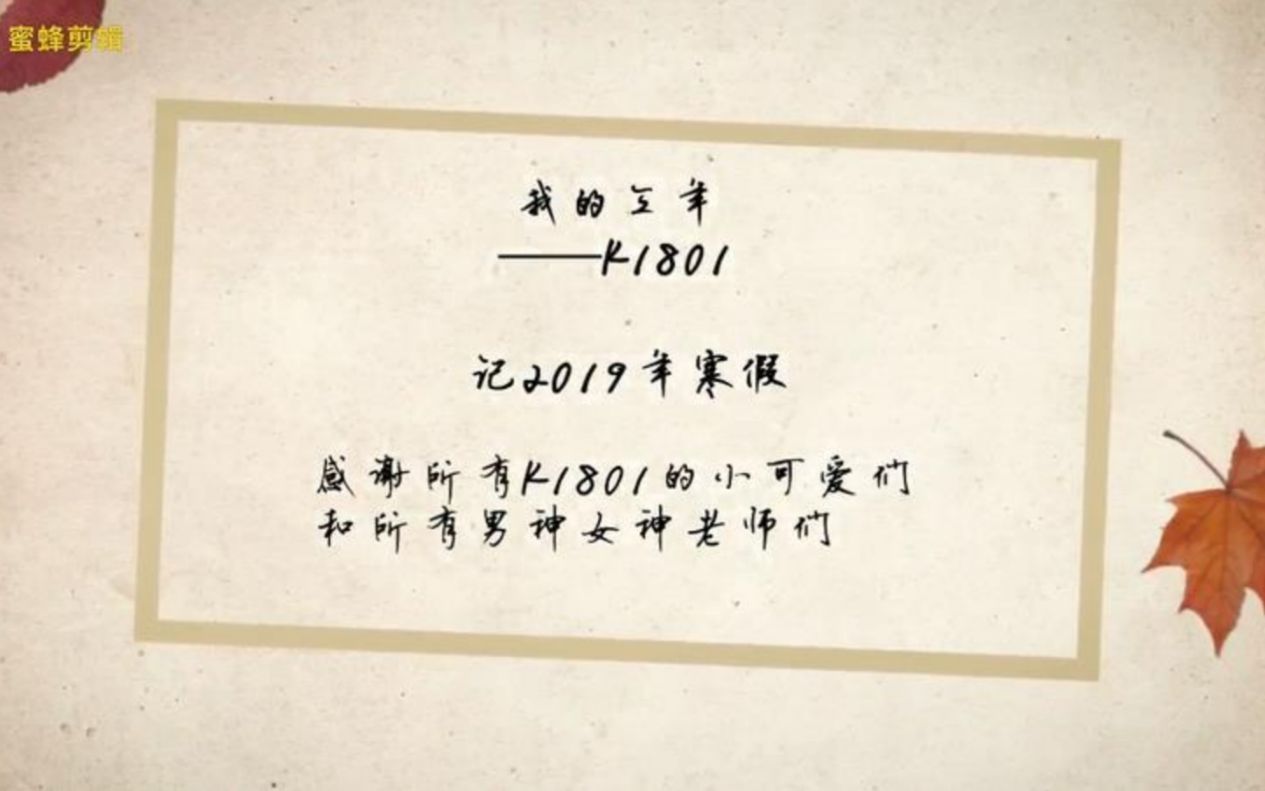 蜜蜂剪辑
我的三年
——K1801
记2019年寒假
感谢所有K1801的小可爱们
和所有男神女神老师们